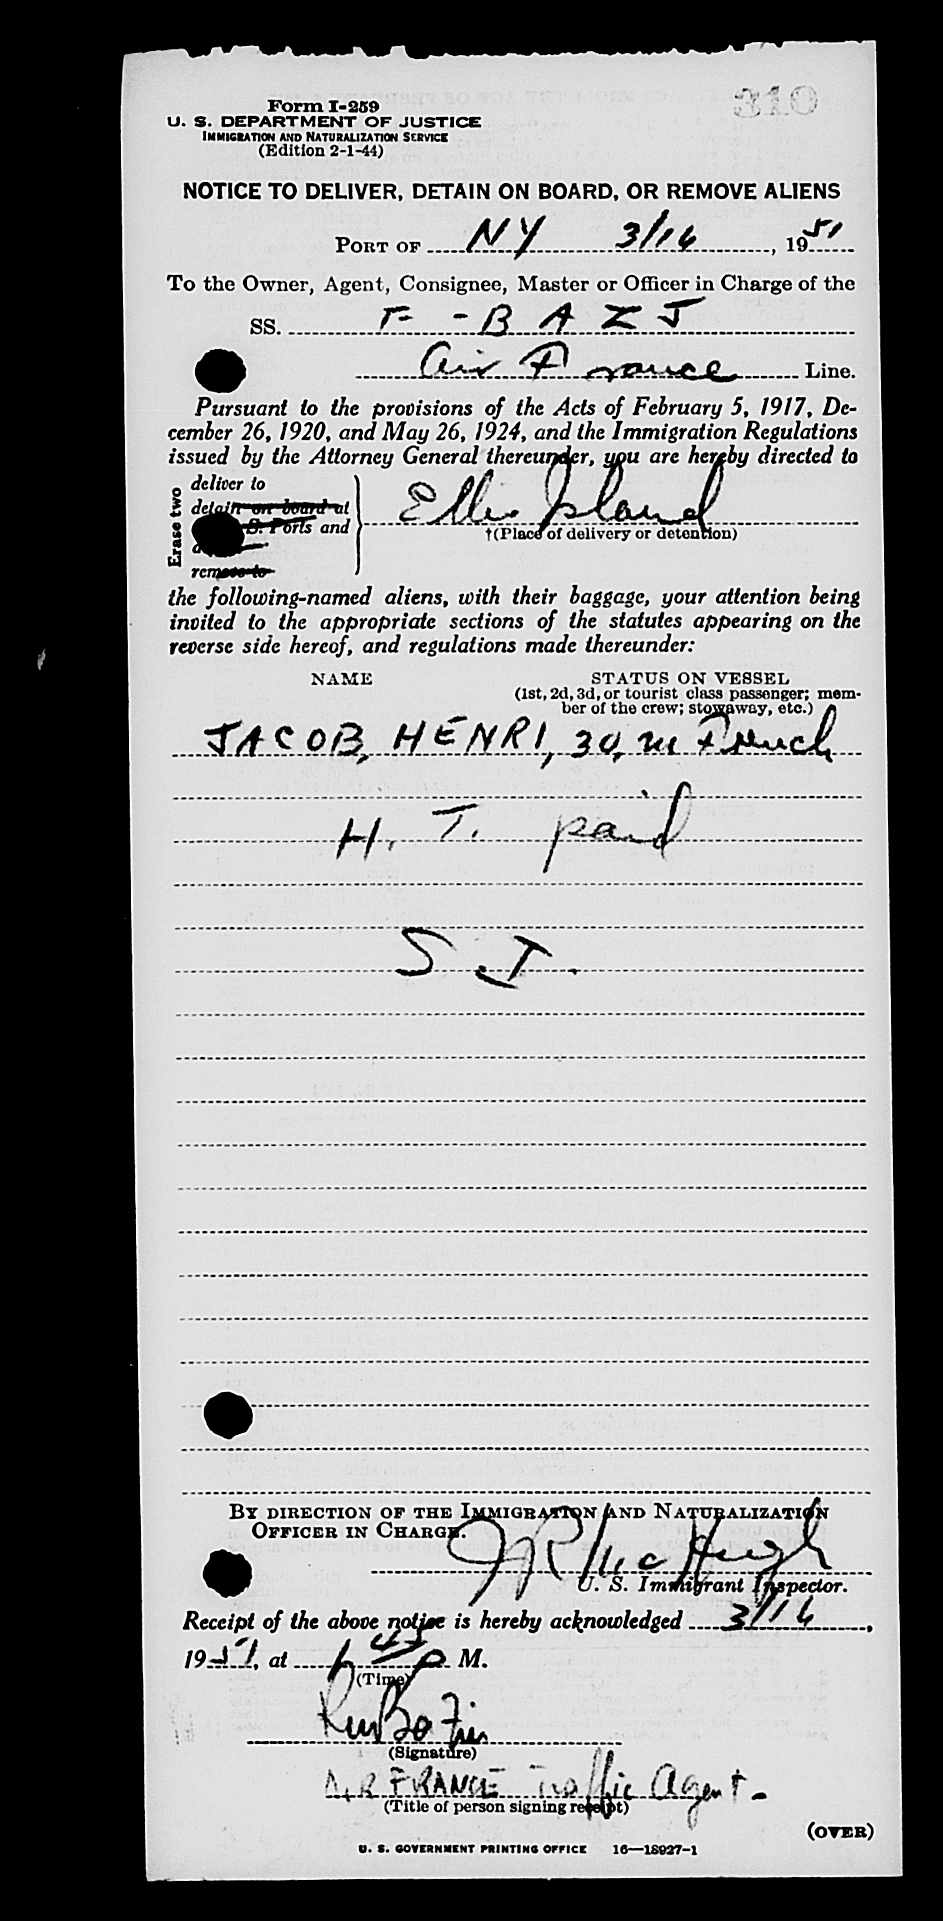 310
Form I-259
U. S. DEPARTMENT OF JUSTICE
IMMIGRATION AND NATURALIZATION SERVICE
(Edition 2-1-44)
NOTICE TO DELIVER, DETAIN ON BOARD, OR REMOVE ALIENS
PORT OF NY 3/16, 1951
To the Owner, Agent, Consignee, Master or Officer in Charge of the
SS. F-BAZJ
Air France Line.
Pursuant to the provisions of the Acts of February 5, 1917, De-
cember 26, 1920, and May 26, 1924, and the Immigration Regulations
issued by the Attorney General thereunder, you are hereby directed to
Erase two
deliver to
detain on board at
S. Ports and
remove to
Ellis Island
†(Place of delivery or detention)
the following-named aliens, with their baggage, your attention being
invited to the appropriate sections of the statutes appearing on the
reverse side hereof, and regulations made thereunder:
NAME STATUS ON VESSEL
(1st, 2d, 3d, or tourist class passenger; mem-
ber of the crew; stowaway, etc.)
JACOB, HENRI, 30, m French
H. T. paid
S J.
BY DIRECTION OF THE IMMIGRATION AND NATURALIZATION
OFFICER IN CHARGE.
U. S. Immigrant Inspector.
Receipt of the above notice is hereby acknowledged 3/16,
1951, at 1 45 P M.
(Time)
(Signature)
AIR FRANCE Traffic Agent-
(Title of person signing receipt)
(OVER)
U. S. GOVERNMENT PRINTING OFFICE 16—18927-1